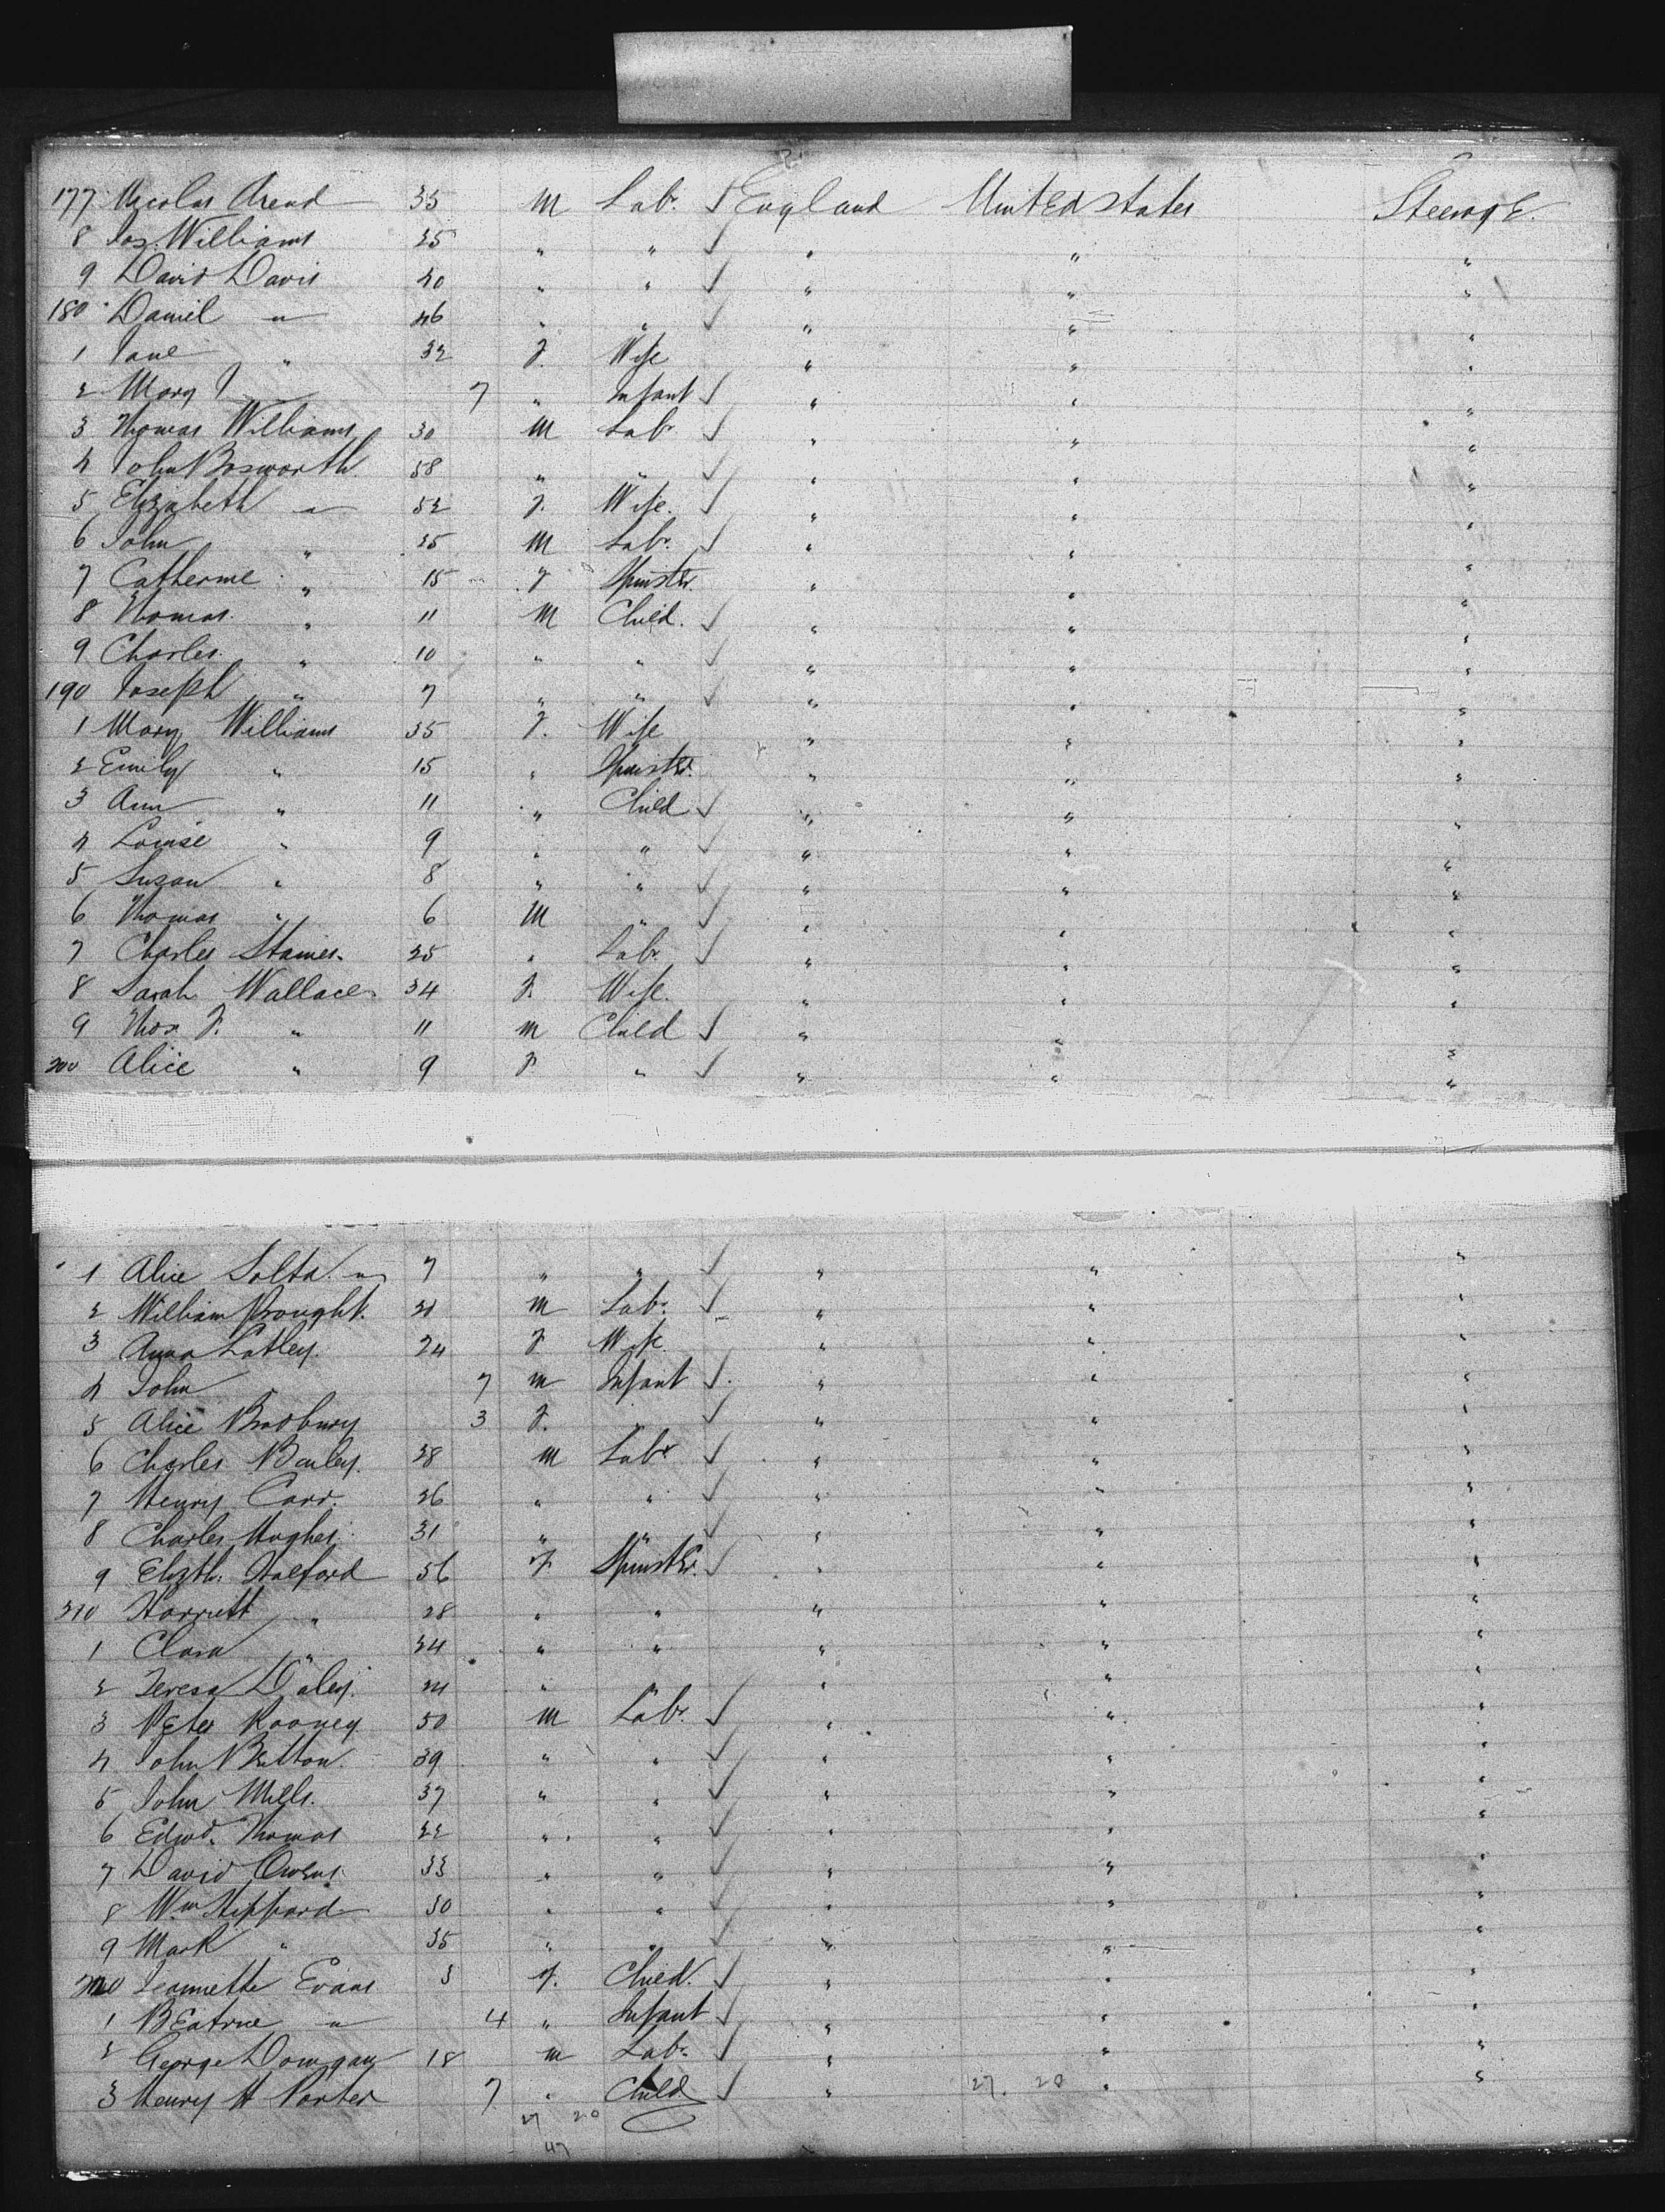 177 Nicolas Arend 35 M Labr. ✓ England United States Steerage.
8 Jos. Williams 25 " " ✓ " " "
9 David Davis 40 " " ✓ " " "
180 Daniel " 46 " " ✓ " " "
1 Jane " 32 F. Wife " " "
2 Mary J 7 " Infant ✓ " " "
3 Thomas Williams 30 M Labr. ✓ " " "
4 John Bosworth. 58 " " ✓ " " "
5 Elizabeth " 52 F. Wife. ✓ " " "
6 John " 25 M Labr. ✓ " " "
7 Catherine " 15 F Spinster. " " "
8 Thomas. " 11 M Child. ✓ " " "
9 Charles. " 10 " " ✓ " " "
190 Joseph " 7 " " ✓ " " "
1 Mary Williams 35 F. Wife " " "
2 Emily " 15 " Spinster. " " "
3 Ann " 11 " Child ✓ " " "
4 Louise " 9 " " ✓ " " "
5 Suzan " 8 " " ✓ " " "
6 Thomas " 6 M " ✓ " " "
7 Charles Staines. 25 " Labr. ✓ " " "
8 Sarah Wallace 34 F. Wife. " " "
9 Thos. F. " 11 M Child ✓ " " "
200 Alice " 9 F " ✓ " " "
1 Alice " 7 " " ✓ " " "
2 William M Labr. ✓ " " "
3 Anna Latley. 24 F Wife. " " "
4 John 7 M Infant ✓ " " "
5 Alice Bradbury 3 F. " ✓ " " "
6 Charles Bailey. 28 M Labr ✓ " " "
7 Henry Carr. 26 " " ✓ " " "
8 Charles Hughes. 31 " " ✓ " " "
9 Elizth. Halford 56 F Spinster. ✓ " " "
210 Harriett " 28 " " " " "
1 Clara " 24 " " " " "
2 Teresa Daley. " " " "
3 Peter Rooney 50 M Labr. ✓ " " "
4 John Britton. 39 " " ✓ " " "
5 John Mills. 37 " " ✓ " " "
6 Edwd. Thomas 22 " " ✓ " " "
7 David Owens. 33 " " ✓ " " "
8 Wm 30 " " ✓ " " "
9 Mark " 35 " " ✓ " " "
220 Jeannette Evans 3 F. Child. ✓ " " "
1 Beatrice " 4 " Infant ✓ " " "
2 George 18 M Labr. ✓ " " "
3 Henry H Porter 7 " Child ✓ " 27. 20 " "
27 20
47